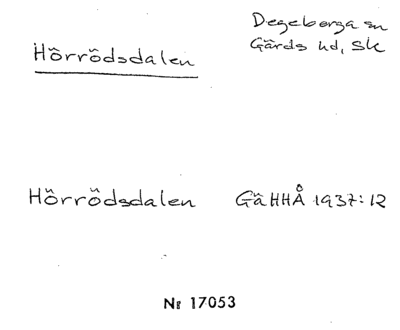 Hörrödsdalen
Degeberga sn
Gärds hd, Sk
Hörrödsdalen GäHHÅ 1937:12
Nr 17053